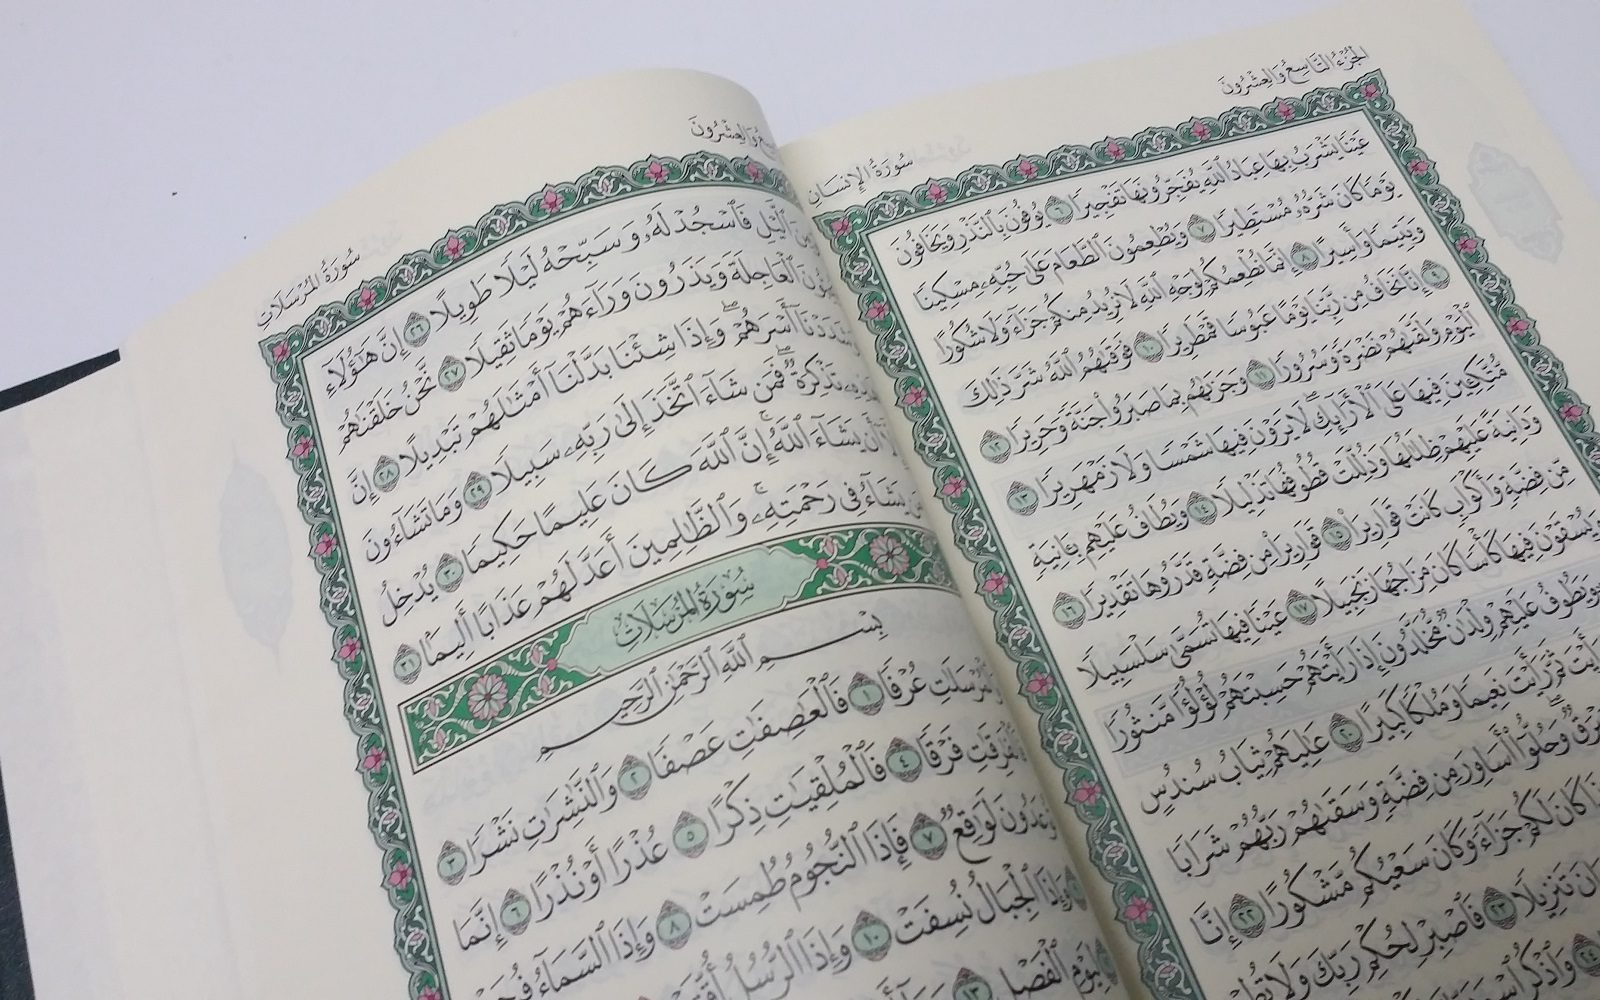 الجُزْءُ التَّاسِعُ وَالعِشْرُونَ
سُورَةُ الإِنسَانِ
عَيْنًا يَشْرَبُ بِهَا عِبَادُ ٱللَّهِ يُفَجِّرُونَهَا تَفْجِيرًا ٦ يُوفُونَ بِٱلنَّذْرِ وَيَخَافُونَ
يَوْمًا كَانَ شَرُّهُۥ مُسْتَطِيرًا ٧ وَيُطْعِمُونَ ٱلطَّعَامَ عَلَىٰ حُبِّهِۦ مِسْكِينًا
وَيَتِيمًا وَأَسِيرًا ٨ إِنَّمَا نُطْعِمُكُمْ لِوَجْهِ ٱللَّهِ لَا نُرِيدُ مِنكُمْ جَزَآءً وَلَا شُكُورًا
٩ إِنَّا نَخَافُ مِن رَّبِّنَا يَوْمًا عَبُوسًا قَمْطَرِيرًا ١٠ فَوَقَىٰهُمُ ٱللَّهُ شَرَّ ذَٰلِكَ
ٱلْيَوْمِ وَلَقَّىٰهُمْ نَضْرَةً وَسُرُورًا ١١ وَجَزَىٰهُم بِمَا صَبَرُوا۟ جَنَّةً وَحَرِيرًا ١٢
مُّتَّكِـِٔينَ فِيهَا عَلَى ٱلْأَرَآئِكِ ۖ لَا يَرَوْنَ فِيهَا شَمْسًا وَلَا زَمْهَرِيرًا ١٣
وَدَانِيَةً عَلَيْهِمْ ظِلَٰلُهَا وَذُلِّلَتْ قُطُوفُهَا تَذْلِيلًا ١٤ وَيُطَافُ عَلَيْهِم بِـَٔانِيَةٍ
مِّن فِضَّةٍ وَأَكْوَابٍ كَانَتْ قَوَارِيرَا۠ ١٥ قَوَارِيرَا۟ مِن فِضَّةٍ قَدَّرُوهَا تَقْدِيرًا ١٦
وَيُسْقَوْنَ فِيهَا كَأْسًا كَانَ مِزَاجُهَا زَنجَبِيلًا ١٧ عَيْنًا فِيهَا تُسَمَّىٰ سَلْسَبِيلًا
وَيَطُوفُ عَلَيْهِمْ وِلْدَٰنٌ مُّخَلَّدُونَ إِذَا رَأَيْتَهُمْ حَسِبْتَهُمْ لُؤْلُؤًا مَّنثُورًا
رَأَيْتَ ثَمَّ رَأَيْتَ نَعِيمًا وَمُلْكًا كَبِيرًا ٢٠ عَٰلِيَهُمْ ثِيَابُ سُندُسٍ
وَحُلُّوٓا۟ أَسَاوِرَ مِن فِضَّةٍ وَسَقَىٰهُمْ رَبُّهُمْ شَرَابًا
كَانَ لَكُمْ جَزَآءً وَكَانَ سَعْيُكُم مَّشْكُورًا ٢٢ إِنَّا
تَنزِيلًا ٢٣ فَٱصْبِرْ لِحُكْمِ رَبِّكَ وَلَا تُطِعْ
٢٤ وَٱذْكُرِ ٱسْمَ
وَالعِشْرُونَ
سُورَةُ المُرْسَلَات
ٱلَّيْلِ فَٱسْجُدْ لَهُۥ وَسَبِّحْهُ لَيْلًا طَوِيلًا ٢٦ إِنَّ هَٰٓؤُلَآءِ
ٱلْعَاجِلَةَ وَيَذَرُونَ وَرَآءَهُمْ يَوْمًا ثَقِيلًا ٢٧ نَّحْنُ خَلَقْنَٰهُمْ
وَشَدَدْنَآ أَسْرَهُمْ ۖ وَإِذَا شِئْنَا بَدَّلْنَآ أَمْثَٰلَهُمْ تَبْدِيلًا ٢٨ إِنَّ
تَذْكِرَةٌ ۖ فَمَن شَآءَ ٱتَّخَذَ إِلَىٰ رَبِّهِۦ سَبِيلًا ٢٩ وَمَا تَشَآءُونَ
أَن يَشَآءَ ٱللَّهُ ۚ إِنَّ ٱللَّهَ كَانَ عَلِيمًا حَكِيمًا ٣٠ يُدْخِلُ
يَشَآءُ فِى رَحْمَتِهِۦ ۚ وَٱلظَّٰلِمِينَ أَعَدَّ لَهُمْ عَذَابًا أَلِيمًۢا ٣١
سُورَةُ المُرْسَلَاتِ
بِسْمِ ٱللَّهِ ٱلرَّحْمَٰنِ ٱلرَّحِيمِ
وَٱلْمُرْسَلَٰتِ عُرْفًا ١ فَٱلْعَٰصِفَٰتِ عَصْفًا ٢ وَٱلنَّٰشِرَٰتِ نَشْرًا ٣
فَٱلْفَٰرِقَٰتِ فَرْقًا ٤ فَٱلْمُلْقِيَٰتِ ذِكْرًا ٥ عُذْرًا أَوْ نُذْرًا ٦ إِنَّمَا
تُوعَدُونَ لَوَٰقِعٌ ٧ فَإِذَا ٱلنُّجُومُ طُمِسَتْ ٨ وَإِذَا ٱلسَّمَآءُ فُرِجَتْ
وَإِذَا ٱلْجِبَالُ نُسِفَتْ ١٠ وَإِذَا ٱلرُّسُلُ أُقِّتَتْ
لِيَوْمِ ٱلْفَصْلِ ١٣